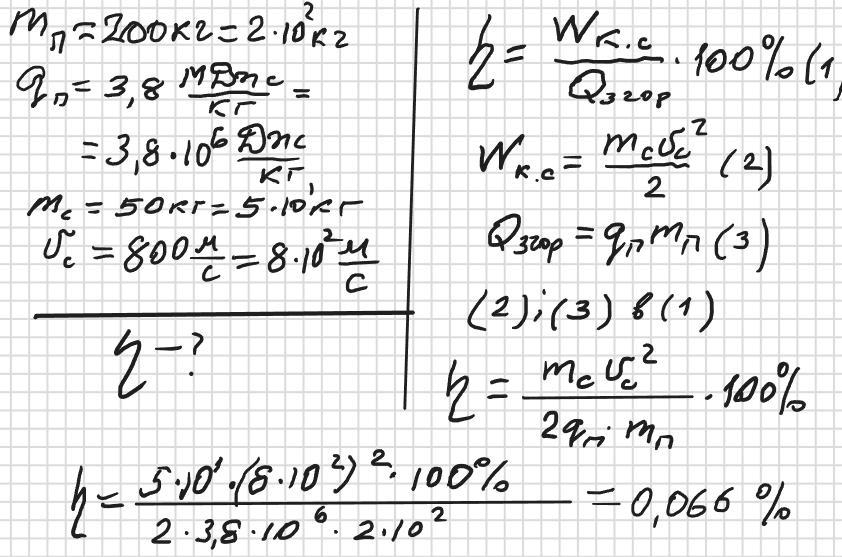 m_п = 200кг = 2·10² кг
q_п = 3,8 МДж/кг =
= 3,8·10⁶ Дж/кг
m_c = 50кг = 5·10¹ кг
υ_c = 800 м/с = 8·10² м/с
η - ?
η = W_к.с / Q_згор · 100% (1)
W_к.с = m_c υ_c² / 2 (2)
Q_згор = q_п m_п (3)
(2); (3) в (1)
η = m_c υ_c² / 2q_п · m_п · 100%
η = 5·10¹·(8·10²)²·100% / 2·3,8·10⁶·2·10² = 0,066 %